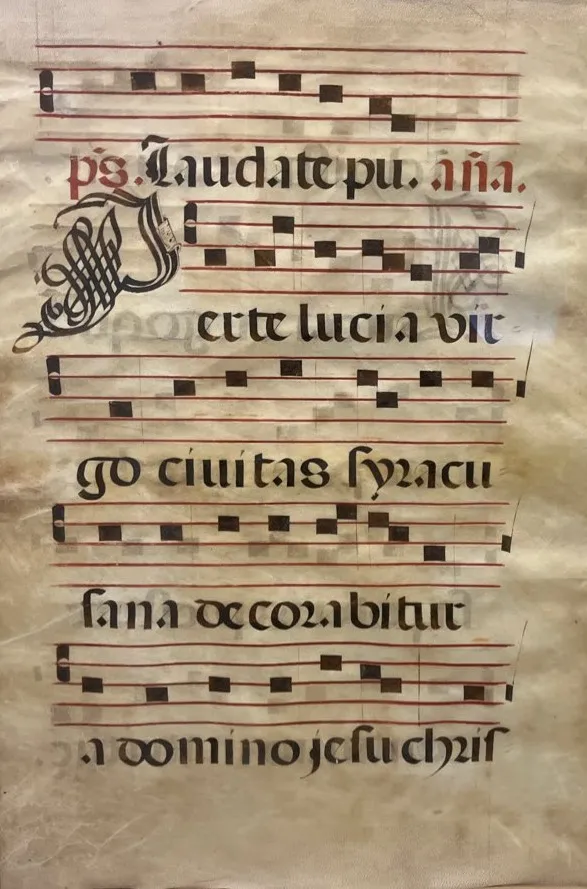 p̃s. Laudate pu. añ.a.
Perte lucia vir
go ciuitas ſyracu
ſana decorabitur
a domino jeſu chriſ